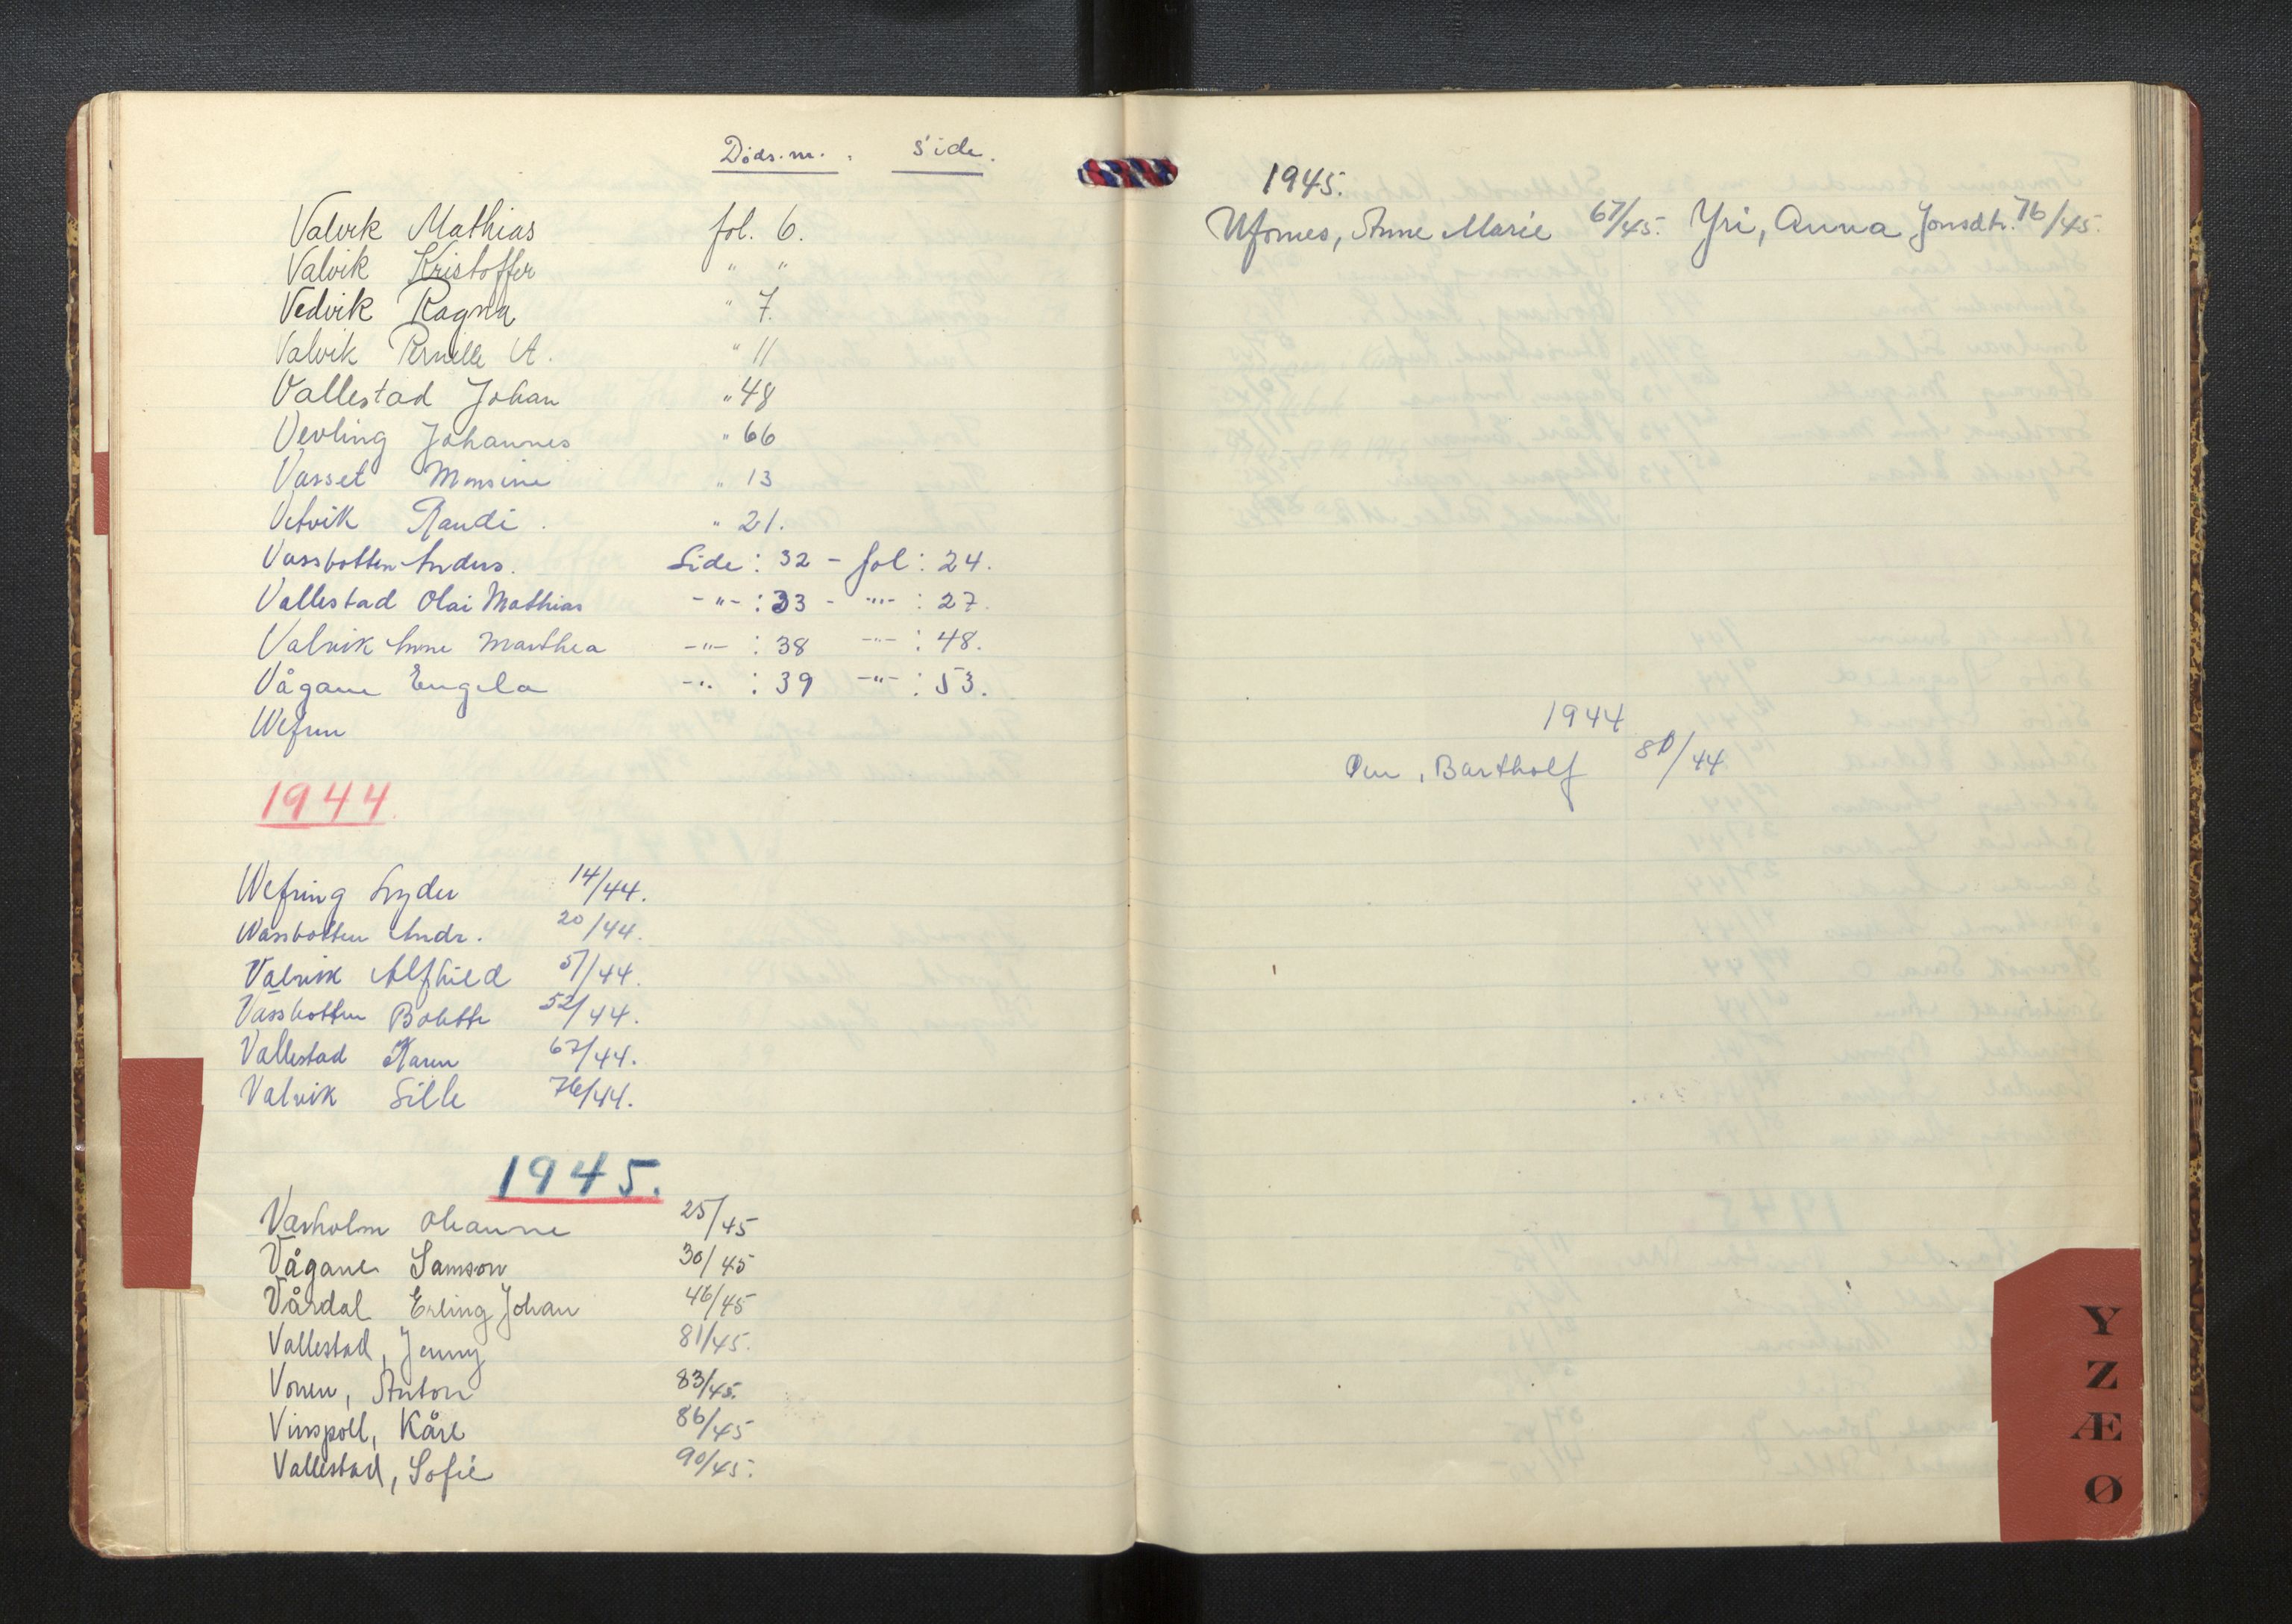 Døds.nr. Side.
Valvik Mathias fol. 6.
Valvik Kristoffer " "
Vedvik Ragna " 7.
Valvik Pernille A. " 11
Vallestad Johan " 48
Vevling Johannes " 66
Vasset Monsine " 13
Vetvik Randi. " 21.
Vassbotten Anders. Side: 32 - fol: 24.
Vallestad Olai Mathias -"- : 33 - -"- : 27.
Valvik Anne Marthea -"- : 38 -"- : 48.
Vågane Engela -"- : 39 -"- : 53.
Wefrin
1944.
Wefring Lyder 14/44.
Wassbotten Andr. 20/44.
Valvik Alfhild 51/44.
Vassbotten Bolette 52/44.
Vallestad Karen 67/44.
Valvik Sille 76/44.
1945.
Varholm Oleanne 25/45
Vågane Samson 30/45
Vårdal Erling Johan 46/45
Vallestad, Jenny 81/45.
Vonen, Anton 83/45.
Vinspoll, Kåre 86/45
Vallestad, Sofie 90/45.
1945.
Ufornes, Anne Marie 67/45. Yri, Anna Jonsdtr. 76/45.
1944
Øen, Bartholf 80/44
Y
Z
Æ
Ø